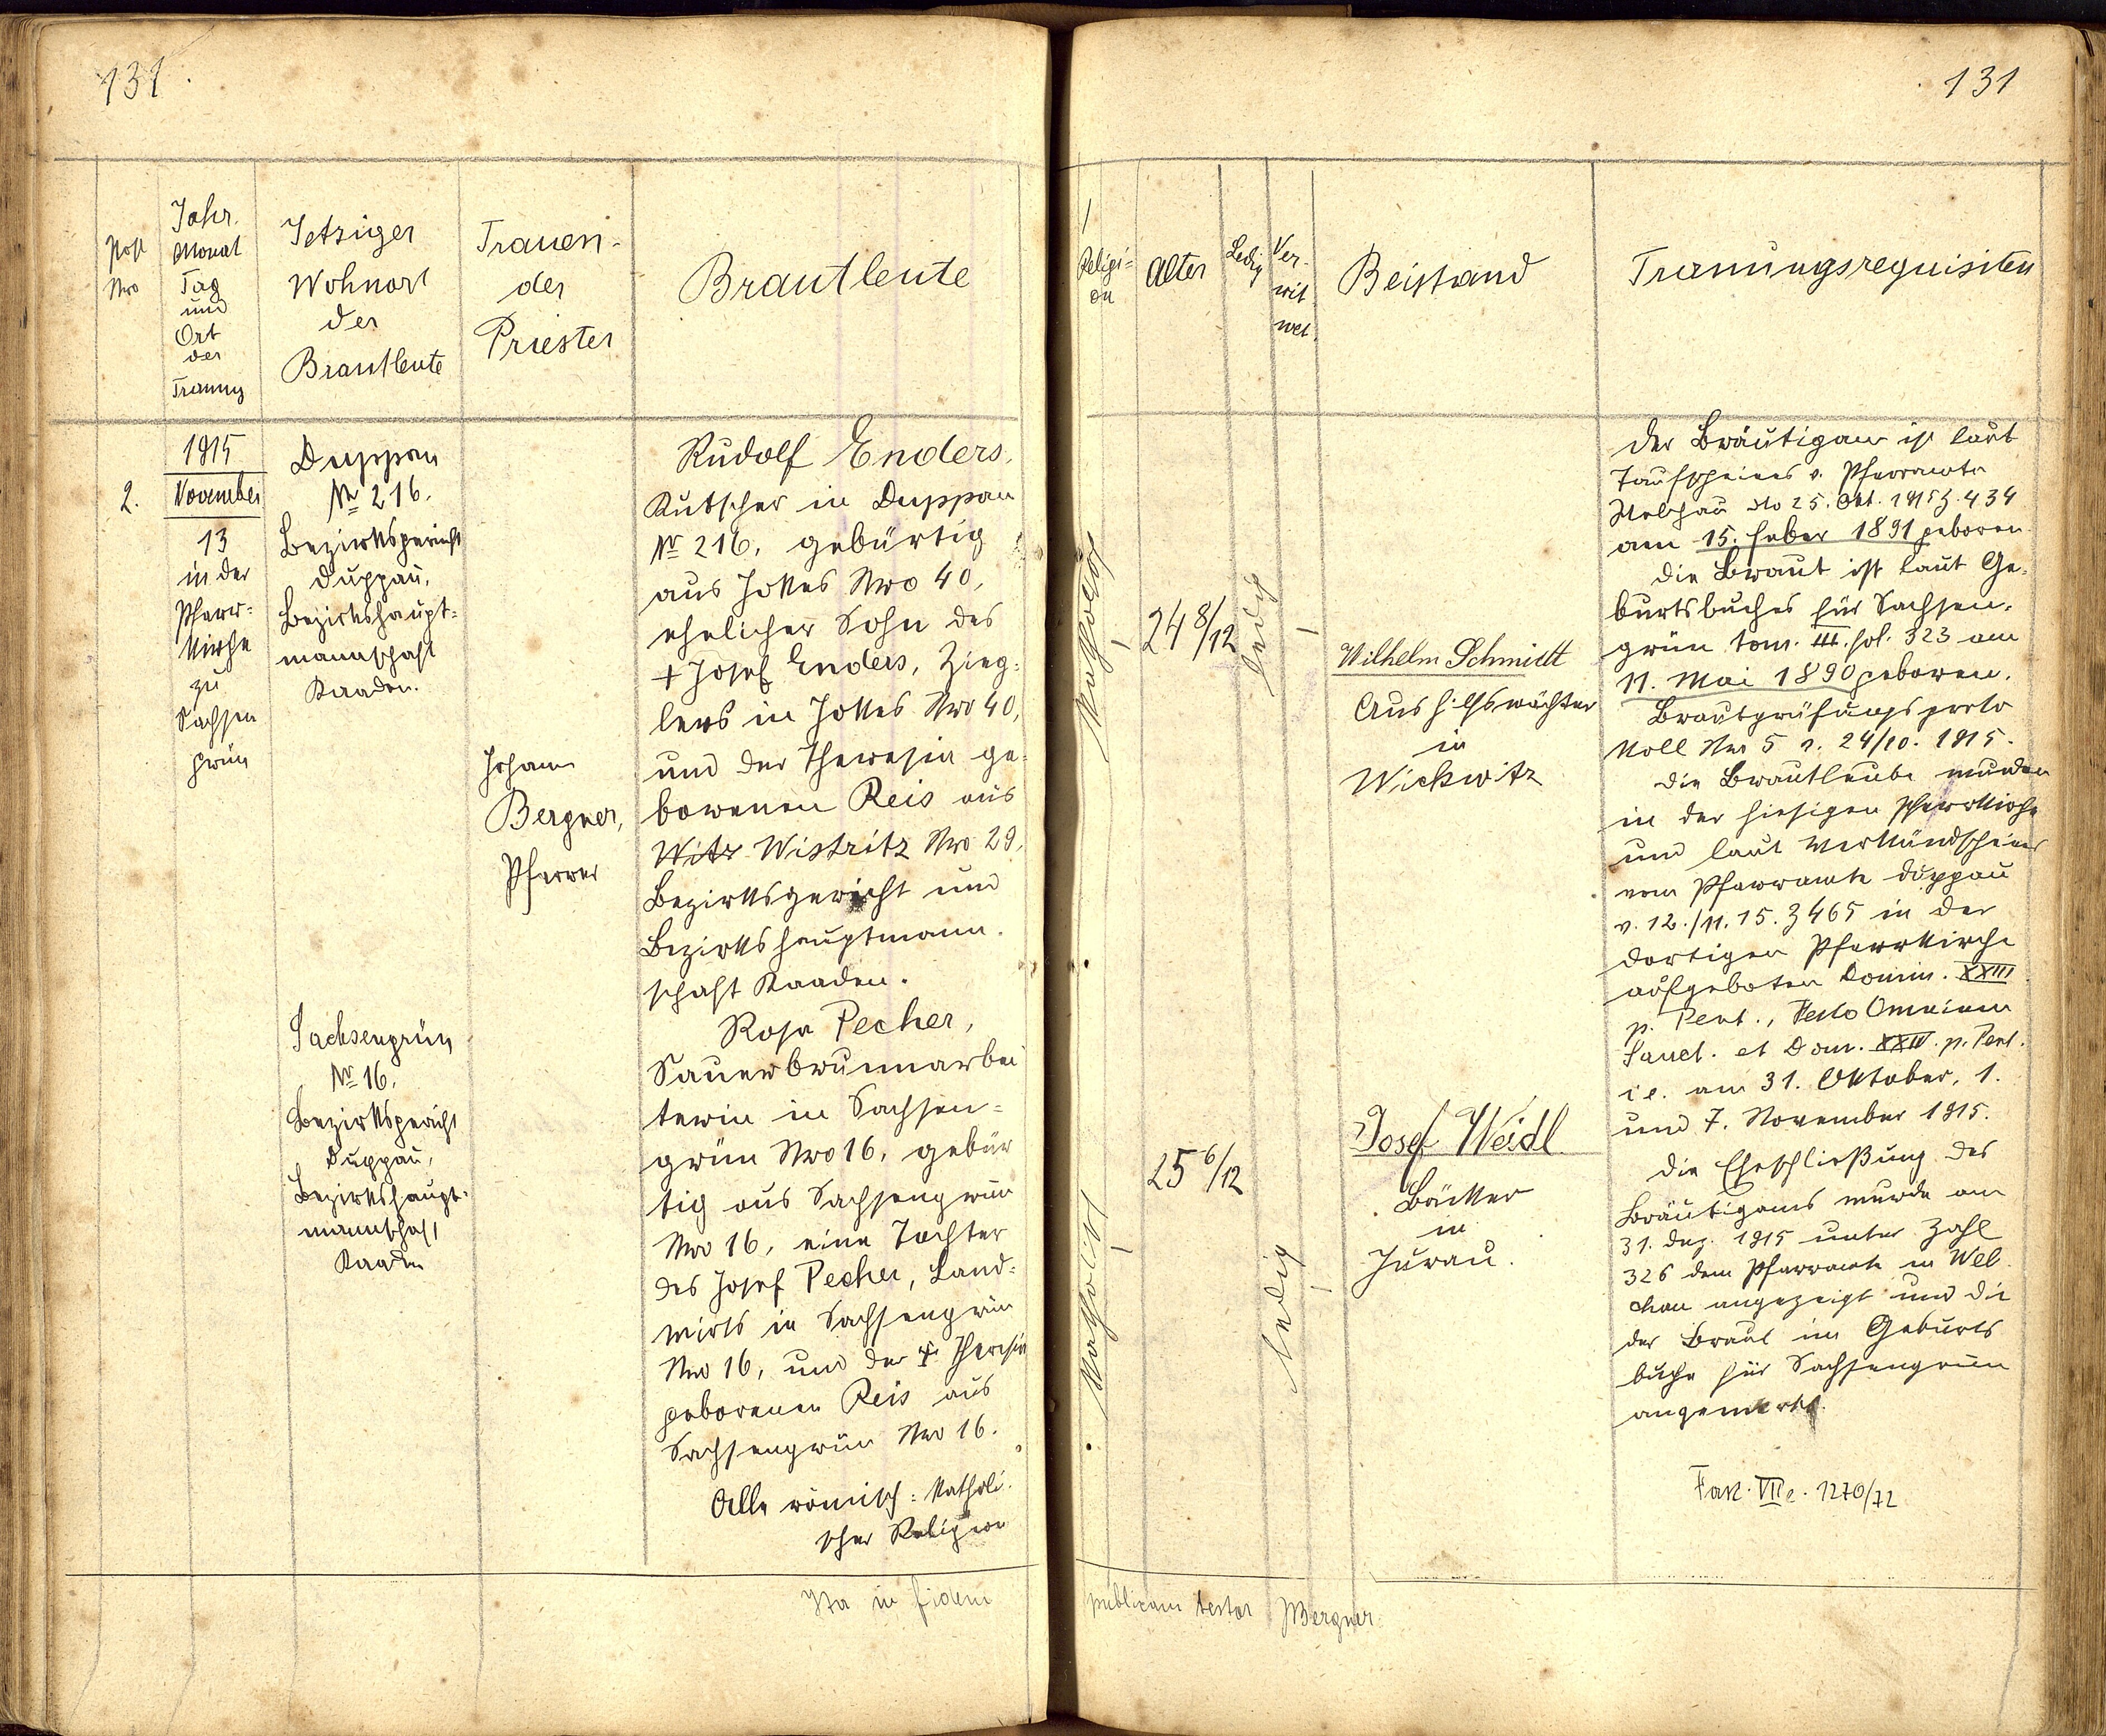 131.
131
Post
Nro
Jahr
Monat
Tag
und
Ort
der
Trauung
Jetziger
Wohnort
der
Brautleute
Trauen-
der
Priester
Brautleute
Religi=
on
Alter
Ledig
Ver-
wit
wet.
Beistand
Trauungsrequisiten
2.
1915
November
13
in der
Pfarr=
kirche
zu
Sachsen
grün
Duppau
Nr 216.
Bezirksgericht
Duppau,
Bezirkshaupt=
mannschaft
Kaaden.
Sachsengrün
Nr 16.
Bezirksgericht
Duppau,
Bezirkshaupt=
mannschaft
Kaaden
Johann
Bergner,
Pfarrer
Rudolf Enders,
Kutscher in Duppau
Nr 216, gebürtig
aus Jokes Nro 40,
ehelicher Sohn des
+ Josef Enders, Zieg=
lers in Jokes Nro 40,
und der Theresia ge=
borenen Reis aus
Witz Wistritz Nro 29,
Bezirksgericht und
Bezirkshauptmann-
schaft Kaaden.
Rosa Pecher,
Sauerbrunnarbei
terin in Sachsen=
grün Nro 16, gebür
tig aus Sachsengrün
Nro 16, eine Tochter
des Josef Pecher, Land=
wirts in Sachsengrün
Nro 16, und der + Theresia
geborenen Reis aus
Sachsengrün Nro 16.
Alle römisch=katholi-
scher Religion
katholisch
24 8/12
ledig
Wilhelm Schmidt
Aushilfswächter
in
Wickwitz
katholisch
25 6/12
ledig
Josef Weidl.
Bäcker
in
Jurau.
Der Bräutigam ist laut
Taufscheines v. Pfarramte
Welchau dto 25. Okt. 1915 Z. 434
am 15. Feber 1891 geboren.
Die Braut ist laut Ge=
burtsbuches für Sachsen=
grün tom. III. fol. 323 am
11. Mai 1890 geboren.
Brautprüfungsproto
koll Nro 5 v. 24/10. 1915.
Die Brautleute wurden
in der hiesigen Pfarrkirche
und laut Verkündscheines
vom Pfarramte Duppau
v. 12./11. 15. Z 465 in der
dortigen Pfarrkirche
aufgeboten Domin. XXIII
p. Pent., Festo Omnium
Sanct. et Dom. XXIV. p. Pent.
i.e. am 31. Oktober, 1.
und 7. November 1915.
Die Eheschließung des
Bräutigams wurde am
31. Dez. 1915 unter Zahl
326 dem Pfarramte in Wel
chau angezeigt und die
der Braut im Geburts
buche für Sachsengrün
angemerkt.
1270/72
Ita in fidem
publicam testor JBergner